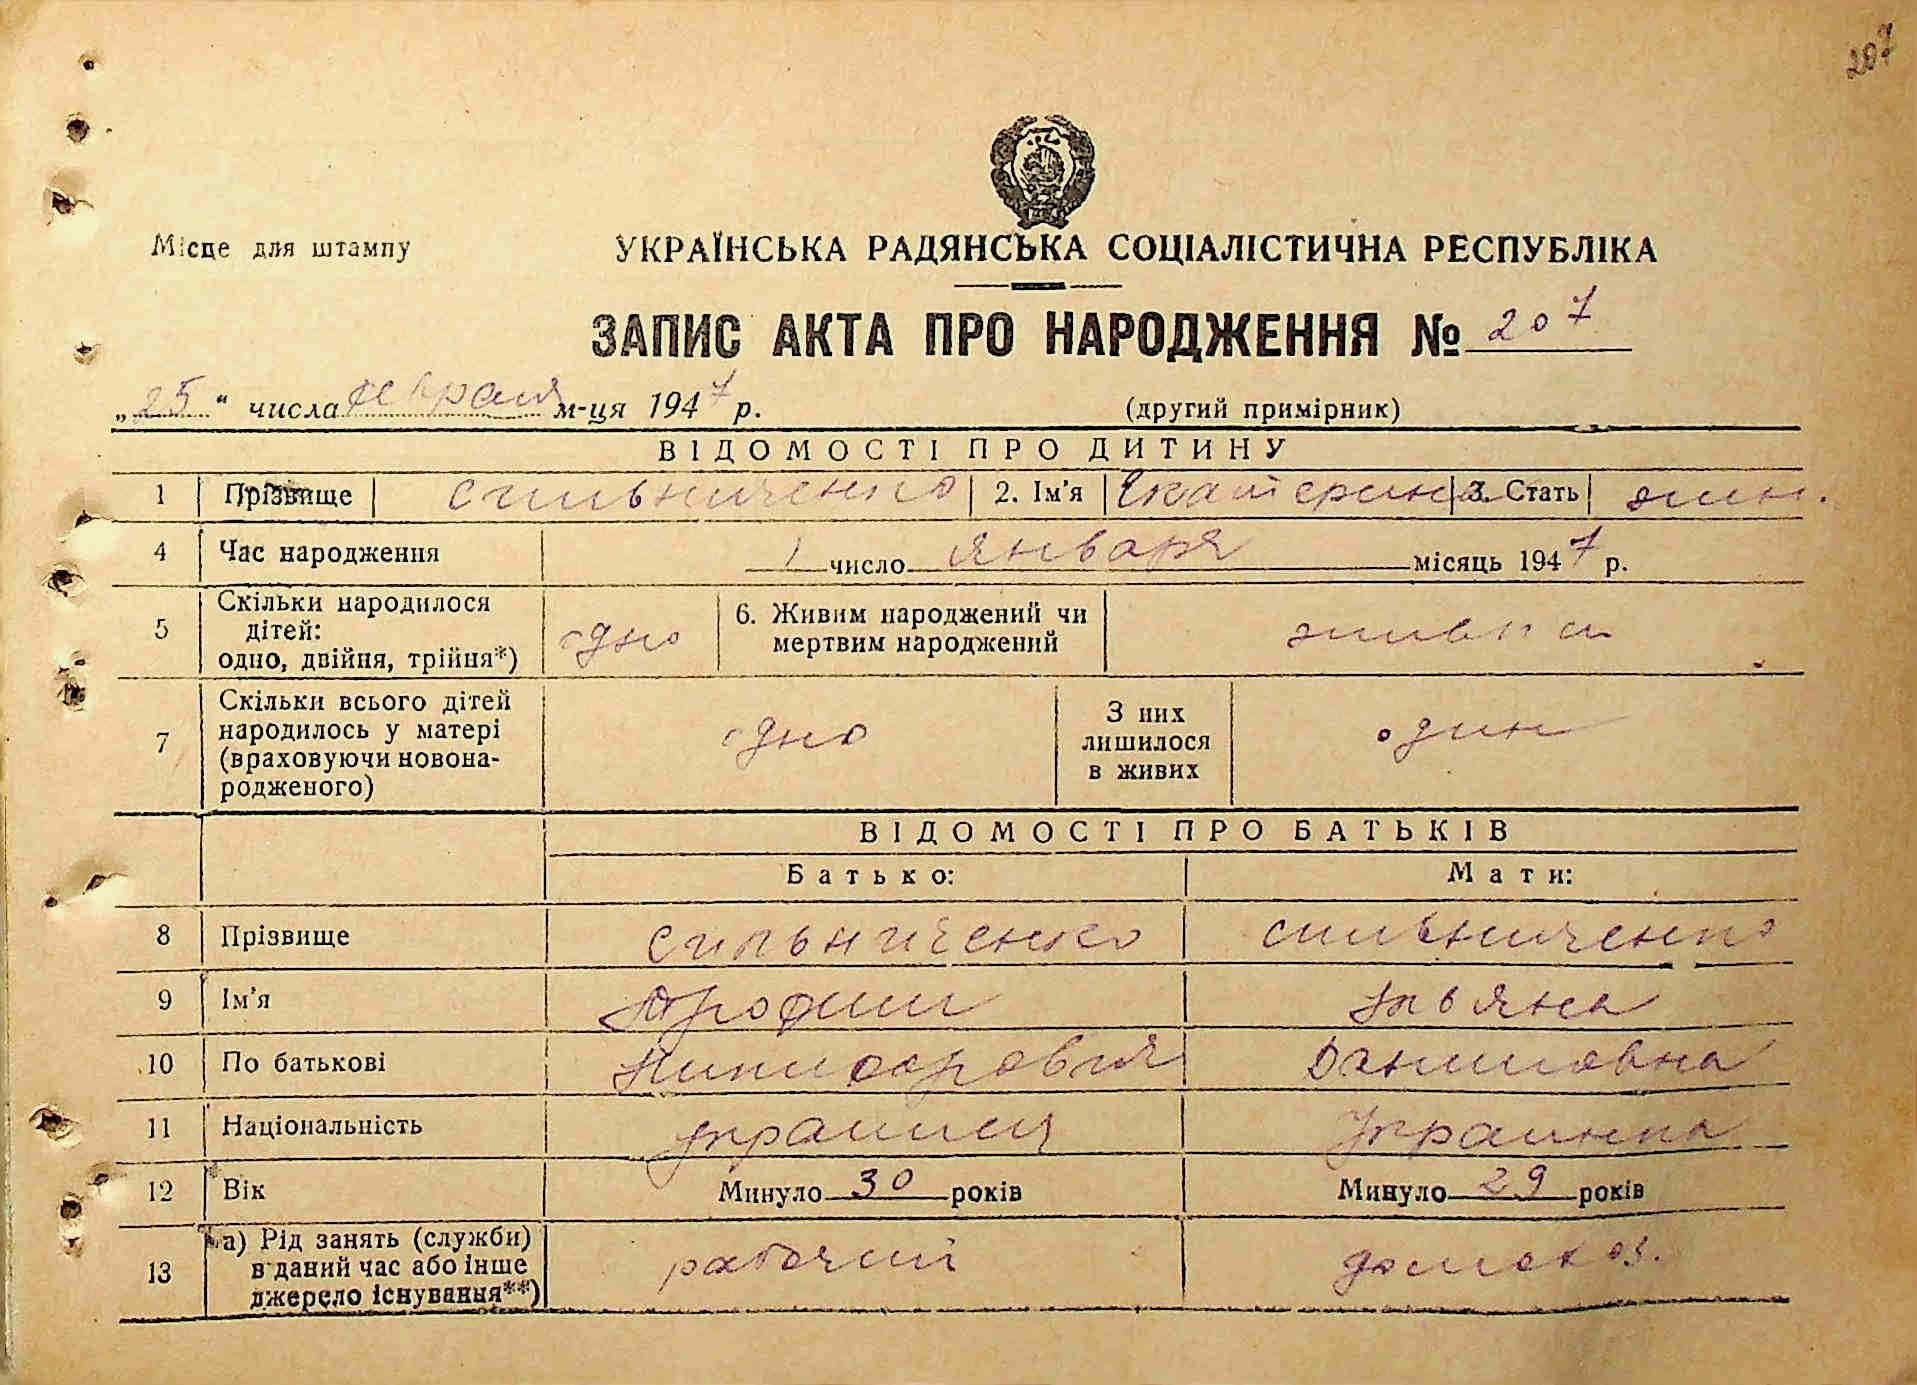 207
Місце для штампу
УКРАЇНСЬКА РАДЯНСЬКА СОЦІАЛІСТИЧНА РЕСПУБЛІКА
ЗАПИС АКТА ПРО НАРОДЖЕННЯ № 207
„25“ числа февраля м-ця 1947 р. (другий примірник)
ВІДОМОСТІ ПРО ДИТИНУ
1 Прізвище Сильниченко 2. Ім’я Екатерина 3. Стать жин.
4 Час народження 1 число января місяць 1947 р.
5 Скільки народилося дітей: одно, двійня, трійня*) одно 6. Живим народжений чи мертвим народжений живым
7 Скільки всього дітей народилось у матері (враховуючи новонародженого) одно З них лишилося в живих один
ВІДОМОСТІ ПРО БАТЬКІВ
Батько: Мати:
8 Прізвище Сильниченко Сильниченко
9 Ім’я Трофим
10 По батькові Никифорович Даниловна
11 Національність украинец Украинка
12 Вік Минуло 30 років Минуло 29 років
13 а) Рід занять (служби) в даний час або інше джерело існування**) рабочий домохоз.